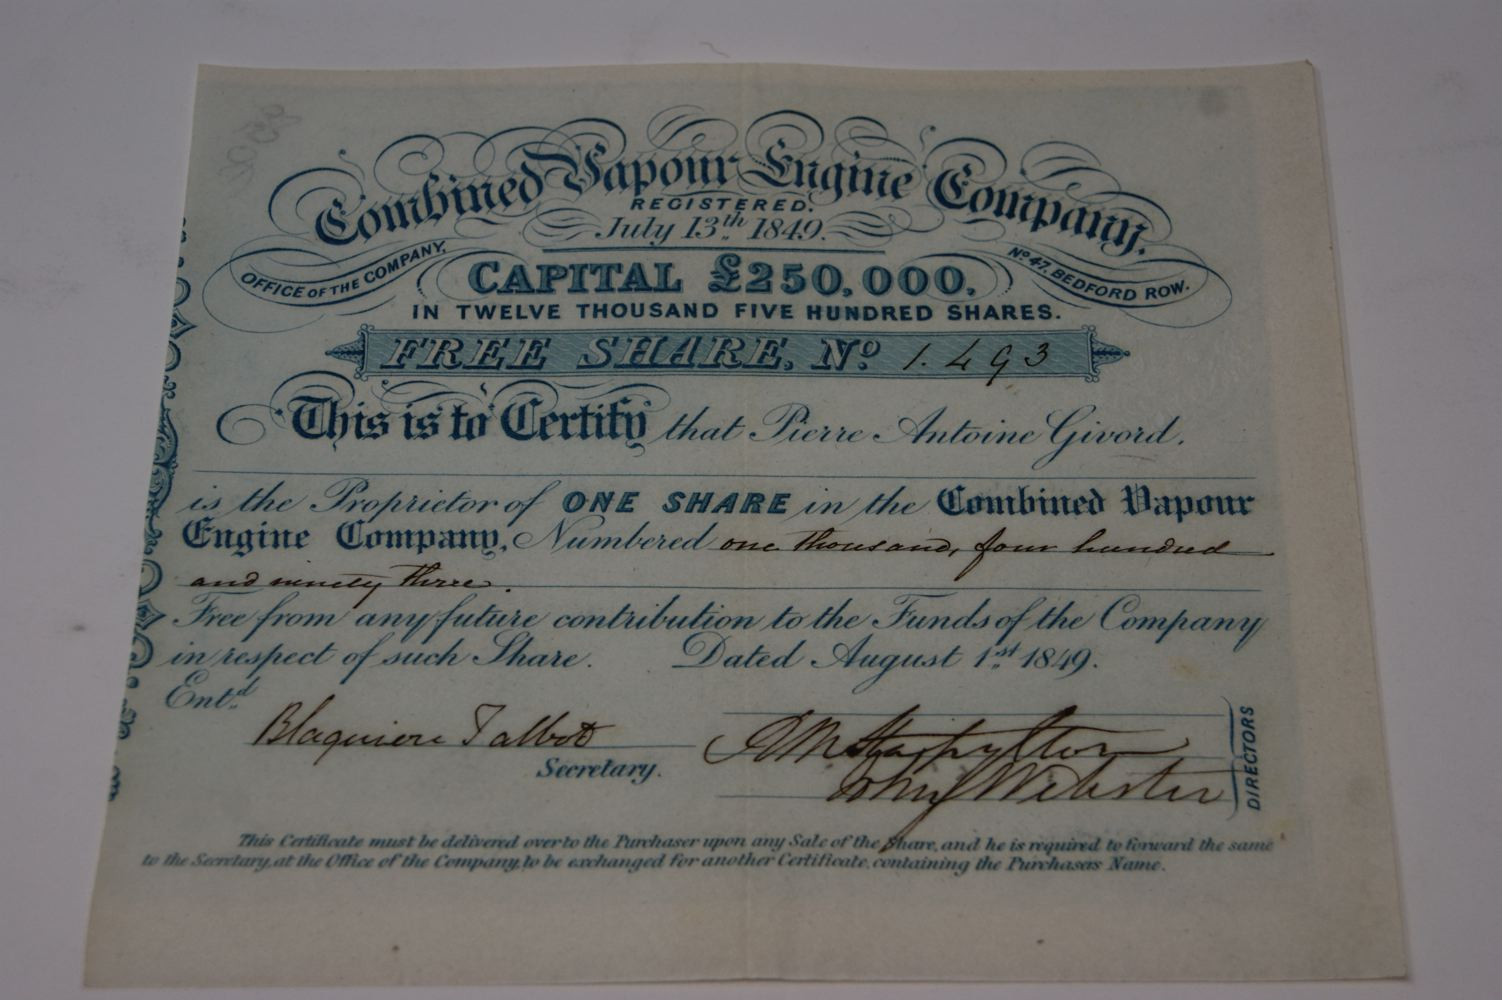 Combined Vapour Engine Company.
REGISTERED.
July 13th. 1849.
OFFICE OF THE COMPANY,
No 47, BEDFORD ROW.
CAPITAL £250,000,
IN TWELVE THOUSAND FIVE HUNDRED SHARES.
FREE SHARE, No. 1.493
This is to Certify that Pierre Antoine Givord.
is the Proprietor of ONE SHARE in the Combined Vapour
Engine Company, Numbered one thousand, four hundred
and ninety three.
Free from any future contribution to the Funds of the Company
in respect of such Share. Dated August 1st. 1849.
Entd.
Blaquiere Talbot
Secretary.
Stapylton
John Webster
DIRECTORS
This Certificate must be delivered over to the Purchaser upon any Sale of the Share, and he is required to forward the same
to the Secretary, at the Office of the Company, to be exchanged for another Certificate, containing the Purchasers Name.